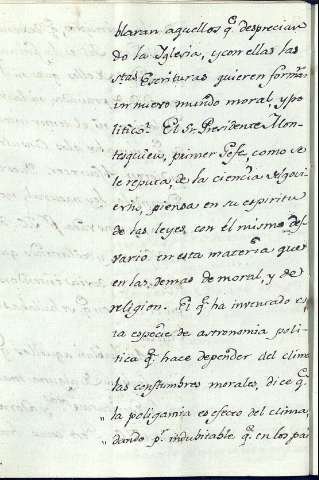 blaran aquellos q.e desprecian-
do la Iglesia, y con ellas las
stas Escrituras quieren formar
un nuevo mundo moral, y po-
litico. El S.r Presidente Mon-
tesquieu, primer Gefe, como se
le reputa, de la ciencia
piensa en su espiritu
de las leyes, con el mismo des-
vario en esta materia que
en las demas de moral, y de
religion. El q.e ha inventado es-
ta especie de astronomia poli-
tica q.e hace depender del clima
las constumbres morales, dice q.e
„ la poligamia es efecto del clima,
„ dando p.r indubitable q.e en los pai